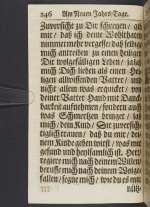 246 Am Neuen Jahrs-Tage.
Zuversicht zu Dir schreyen / als
mir / daß ich deine Wohlthaten
nimmermehr vergesse / daß selbige
mich antreiben zu einem heiligen
Dir wolgefälligen Leben / laß
mich Dich lieben als einen Hei-
ligen allwissenden Vatter / und
nicht allein was erquicket / von
deiner Vatter-Hand mit Danck-
barkeit aufnehmen / sondern auch
was Schmertzen bringet / laß
mich / dein Kind / Dir zuversicht-
lich trauen / daß du mir / dei-
nem Kinde geben wirst / was mir
gesund und heilsamlich ist. Herr
regiere mich nach deinem Willen /
beruffe mich nach deinem Wolge-
fallen / segne mich / wie du es mir
nütz-